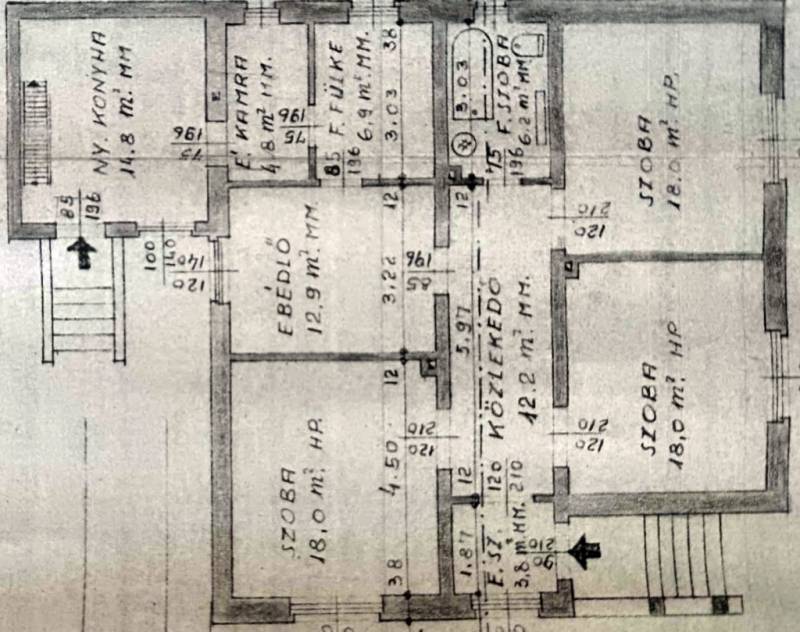 NY KONYHA
14.8 m² MM
É. KAMRA
4.8 m² MM.
F. FÜLKE
6.9 m² MM.
38
3.03
3.03
F. SZOBA
6.2 m² MM
SZOBA
18.0 m² HP.
196
75
196
75
85
196
75
196
85
196
100
140
140
120
EBÉDLŐ
12.9 m² MM.
12
3.22
12
196
85
12
5.97
12
KÖZLEKEDŐ
12.2 m² MM.
210
120
SZOBA
18,0 m² HP
210
120
210
120
SZOBA
18,0 m² HP.
4.50
38
120
210
1.87
E. SZ.
3.8 m² MM.
210
90